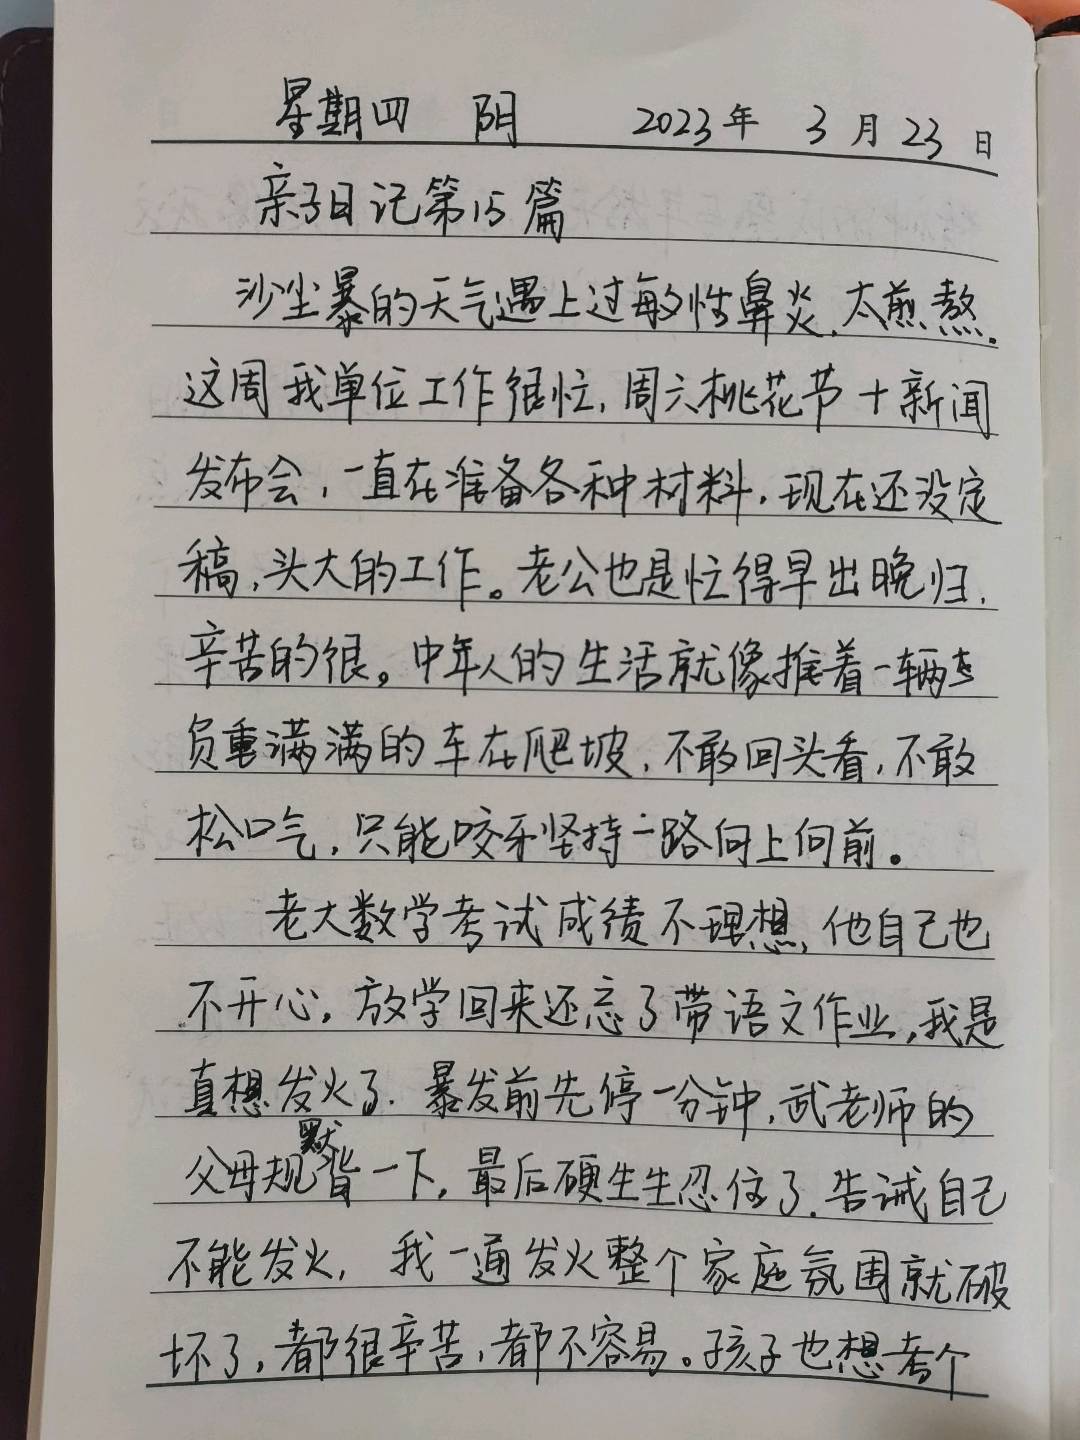 星期四 阴 2023年 3月23日
亲子日记第15篇
沙尘暴的天气遇上过敏性鼻炎,太煎熬.
这周我单位工作很忙,周六桃花节十新闻
发布会,一直在准备各种材料,现在还没定
稿,头大的工作。老公也是忙得早出晚归,
辛苦的很。中年人的生活就像推着一辆
负重满满的车在爬坡,不敢回头看,不敢
松口气,只能咬牙坚持一路向上向前。
老大数学考试成绩不理想,他自己也
不开心,放学回来还忘了带语文作业,我是
真想发火了.暴发前先停一分钟,武老师的
父母规默背一下,最后硬生生忍住了.告诫自己
不能发火,我一通发火整个家庭氛围就破
坏了,都很辛苦,都不容易。孩子也想考个